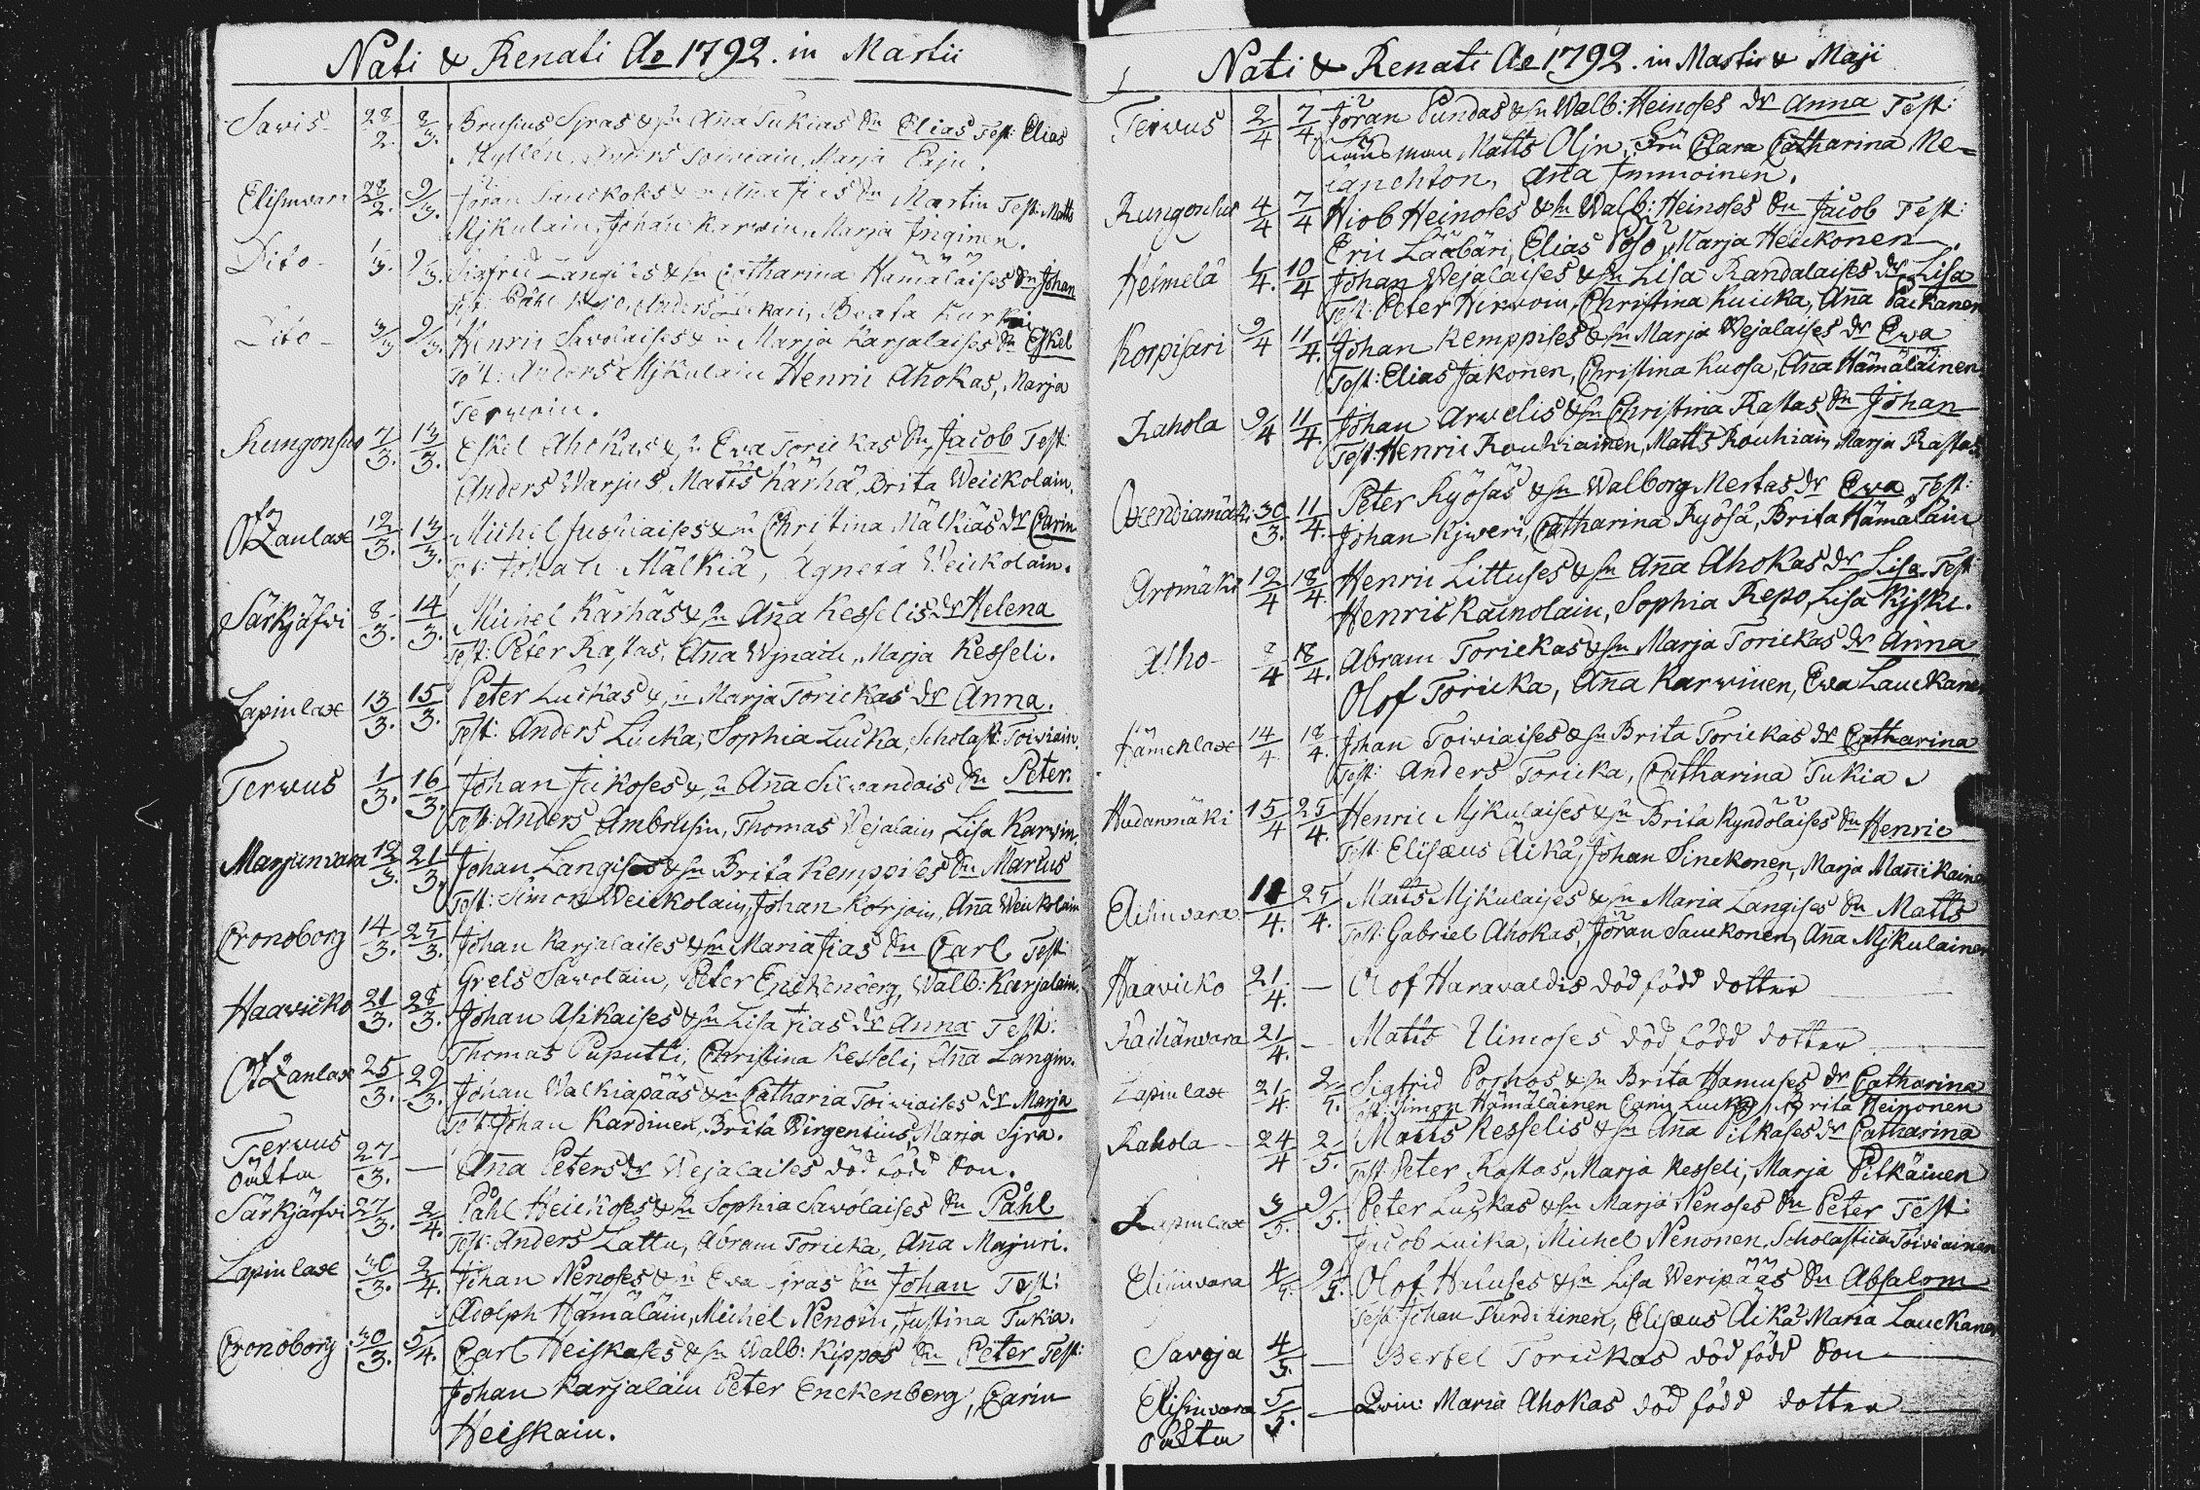 Nati & Renati Ao 1792. in Martii
Savis 28/2. 8/3. Brusius Sjras & hu Aña Tukias Sn Elias Test: Elias
Kyllen, Anders Toiviain, Marja Paju.
Elisinvara 28/2. 9/3. Jöran Sauckokes & hu Aña Jias Sn Martin Test: Matts
Mjkulain, Johan Karvin, Marja Inginen.
Dito 1/3. 9/3. Sigfrid Langises & hu Catharina Hämäläises Sn Johan
Test: Påhl Anders Beata Kurki
Dito 3/3 9/3. Henric Savolaises & hu Marja Karjalaises Sn Eskel
Test: Anders Mjkulain Henric Ahokas, Marja
Tervoin.
Kungonsuo 7/3. 13/3. Eskel Ahokas & hu Eva Torickas Sn Jacob Test:
Anders Warjus, Matts Kärhä, Brita Weickolain.
Otzanlax 12/3. 13/3. Michel Jusniaises & hu Christina Mälkiäs dr Carin
Test: Johan Mälkiä, Agneta Weickolain.
Särkjärfvi 8/3. 14/3. Michel Kärhäs & hu Aña Kesselis dr Helena
Test: Peter Rastas, Aña Wjnain, Marja Kesseli.
Lapinlax 13/3. 15/3. Peter Luckas & hu Marja Torickas dr Anna.
Test: Anders Lucka, Sophia Lucka, Scholast: Toiviain.
Tervus 1/3. 16/3. Johan Jeikoses & hu Aña Silvandois Sn Peter.
Test: Anders Ambrusin, Thomas Wejalain Lisa Karvin.
Marjunvara 12/3. 21/3. Johan Langises & hu Brita Kemppises Sn Marcus
Test: Simon Weickolain, Johan Korjoin, Aña Weickolain
Cronoborg 14/3. 25/3. Johan Karjalaises & hu Maria Jias Sn Carl Test:
Grels Savolain, Peter Enckenberg, Walb: Karjalain.
Haavicko 21/3. 28/3. Johan Asikaises & hu Lisa Jias dr Anna Test:
Thomas Puputti, Christina Kesseli, Aña Langin.
Otzanlax 25/3. 29/3. Johan Walkiapääs & hu Catharia Toiviaises dr Marja
Test: Johan Kardinen, Brita Virgensius, Marja Sjra.
Tervus
oäkta 27/3. — Aña Petersdr Wejalaises dödfödd Son.
Särkjärfvi 27/3. 2/4. Påhl Heickoses & hu Sophia Savolaises Sn Påhl
Test: Anders Lattu, Abram Toricka, Aña Majuri.
Lapinlax 30/3. 2/4. Johan Nenoses & hu Eva Sjras Sn Johan Test:
Adolph Hämäläin, Michel Nenoin, Justina Tukia.
Cronoborg 30/3. 5/4. Carl Heiskases & hu Walb: Kippos Sn Peter Test:
Johan Karjalain Peter Enckenberg, Carin
Heiskain.
Nati & Renati Ao 1792. in Martii & Maji
Tervus 2/4 7/4 Jöran Pundas & hu Walb: Heinoses dr Anna Test:
Länsman Matts Oljn, Fru Clara Catharina Me=
lanchton, Aña Immoinen.
Kungonsuo 4/4 7/4 Hiob Heinoses & hu Walb: Heinoses Sn Jacob Test:
Eric Lääbäri, Elias Poso, Marja Heickonen
Helmelä 1/4. 10/4 Johan Wejalaises & hu Lisa Randalaises dr Lisa
Test: Peter Hirvoin, Christina Kuicka, Aña Päckanen
Korpisari 9/4 11/4. Johan Kemppises & hu Marja Wejalaises dr Eva
Test: Elias Jakonen, Christina Kuosa, Aña Hämäläinen.
Rahola 9/4 11/4. Johan Arvelis & hu Christina Rastas Sn Johan
Test: Henric Rouhiainen, Matts Rouhiain, Marja Rastas
30/3. 11/4. Peter Ryösäs & hu Walborg Mertas dr Eva Test:
Johan Kjveri, Catharina Ryösä, Brita Hämäläin
Aromäki 12/4 18/4. Henric Littuses & hu Aña Ahokas dr Lisa Test:
Henric Rainolain, Sophia Repo, Lisa Kjski.
Alho 7/4 18/4. Abram Torickas & hu Marja Torickas dr Anna
Olof Toricka, Aña Karvinen, Eva Lauckanen
Hämehlax 14/4 18/4. Johan Toiviaises & hu Brita Torickas dr Catharina
Test: Anders Toricka, Catharina Tukia
Hudanmäki 15/4 25/4. Henric Mjkulaises & hu Brita Kyndöläises Sn Henric
Test: Elisæus Äikä, Johan Sinckonen, Marja Mañikainen
Elisinvara 11/4. 25/4. Matts Mjkulaises & hu Maria Langises Sn Matts
Test: Gabriel Ahokas, Jöran Sauckonen, Aña Mjkulainen
Haavicko 21/4. — Olof Haravaldis dödfödd dotter
Raihänvara 21/4. — Matts Uimoses dödfödd dotter
Lapinlax 21/4. 2/5. Sigfrid Pophos & hu Brita Hamuses dr Catharina
Test: Simon Hämäläinen Carin Lucka, Brita Heinonen
Rahola 24/4 2/5. Matts Kesselis & hu Aña Pilkases dr Catharina
Test: Peter Rastas, Marja Kesseli, Marja Pitkäinen
Lapinlax 3/5. 9/5. Peter Luckas & hu Marja Nenoses Sn Peter Test:
Jacob Lucka, Michel Nenonen, Scholastica Toiviainen
Elisinvara 4/5. 9/5. Olof Huluses & hu Lisa Weripääs Sn Absalom
Test: Johan Turdiainen, Elisæus Äikä Maria Lauckanen
Savoja 4/5. — Bertel Torickas dödfödd Son
Elisinvara
oäkta 5/5. — Qvin: Maria Ahokas dödfödd dotter